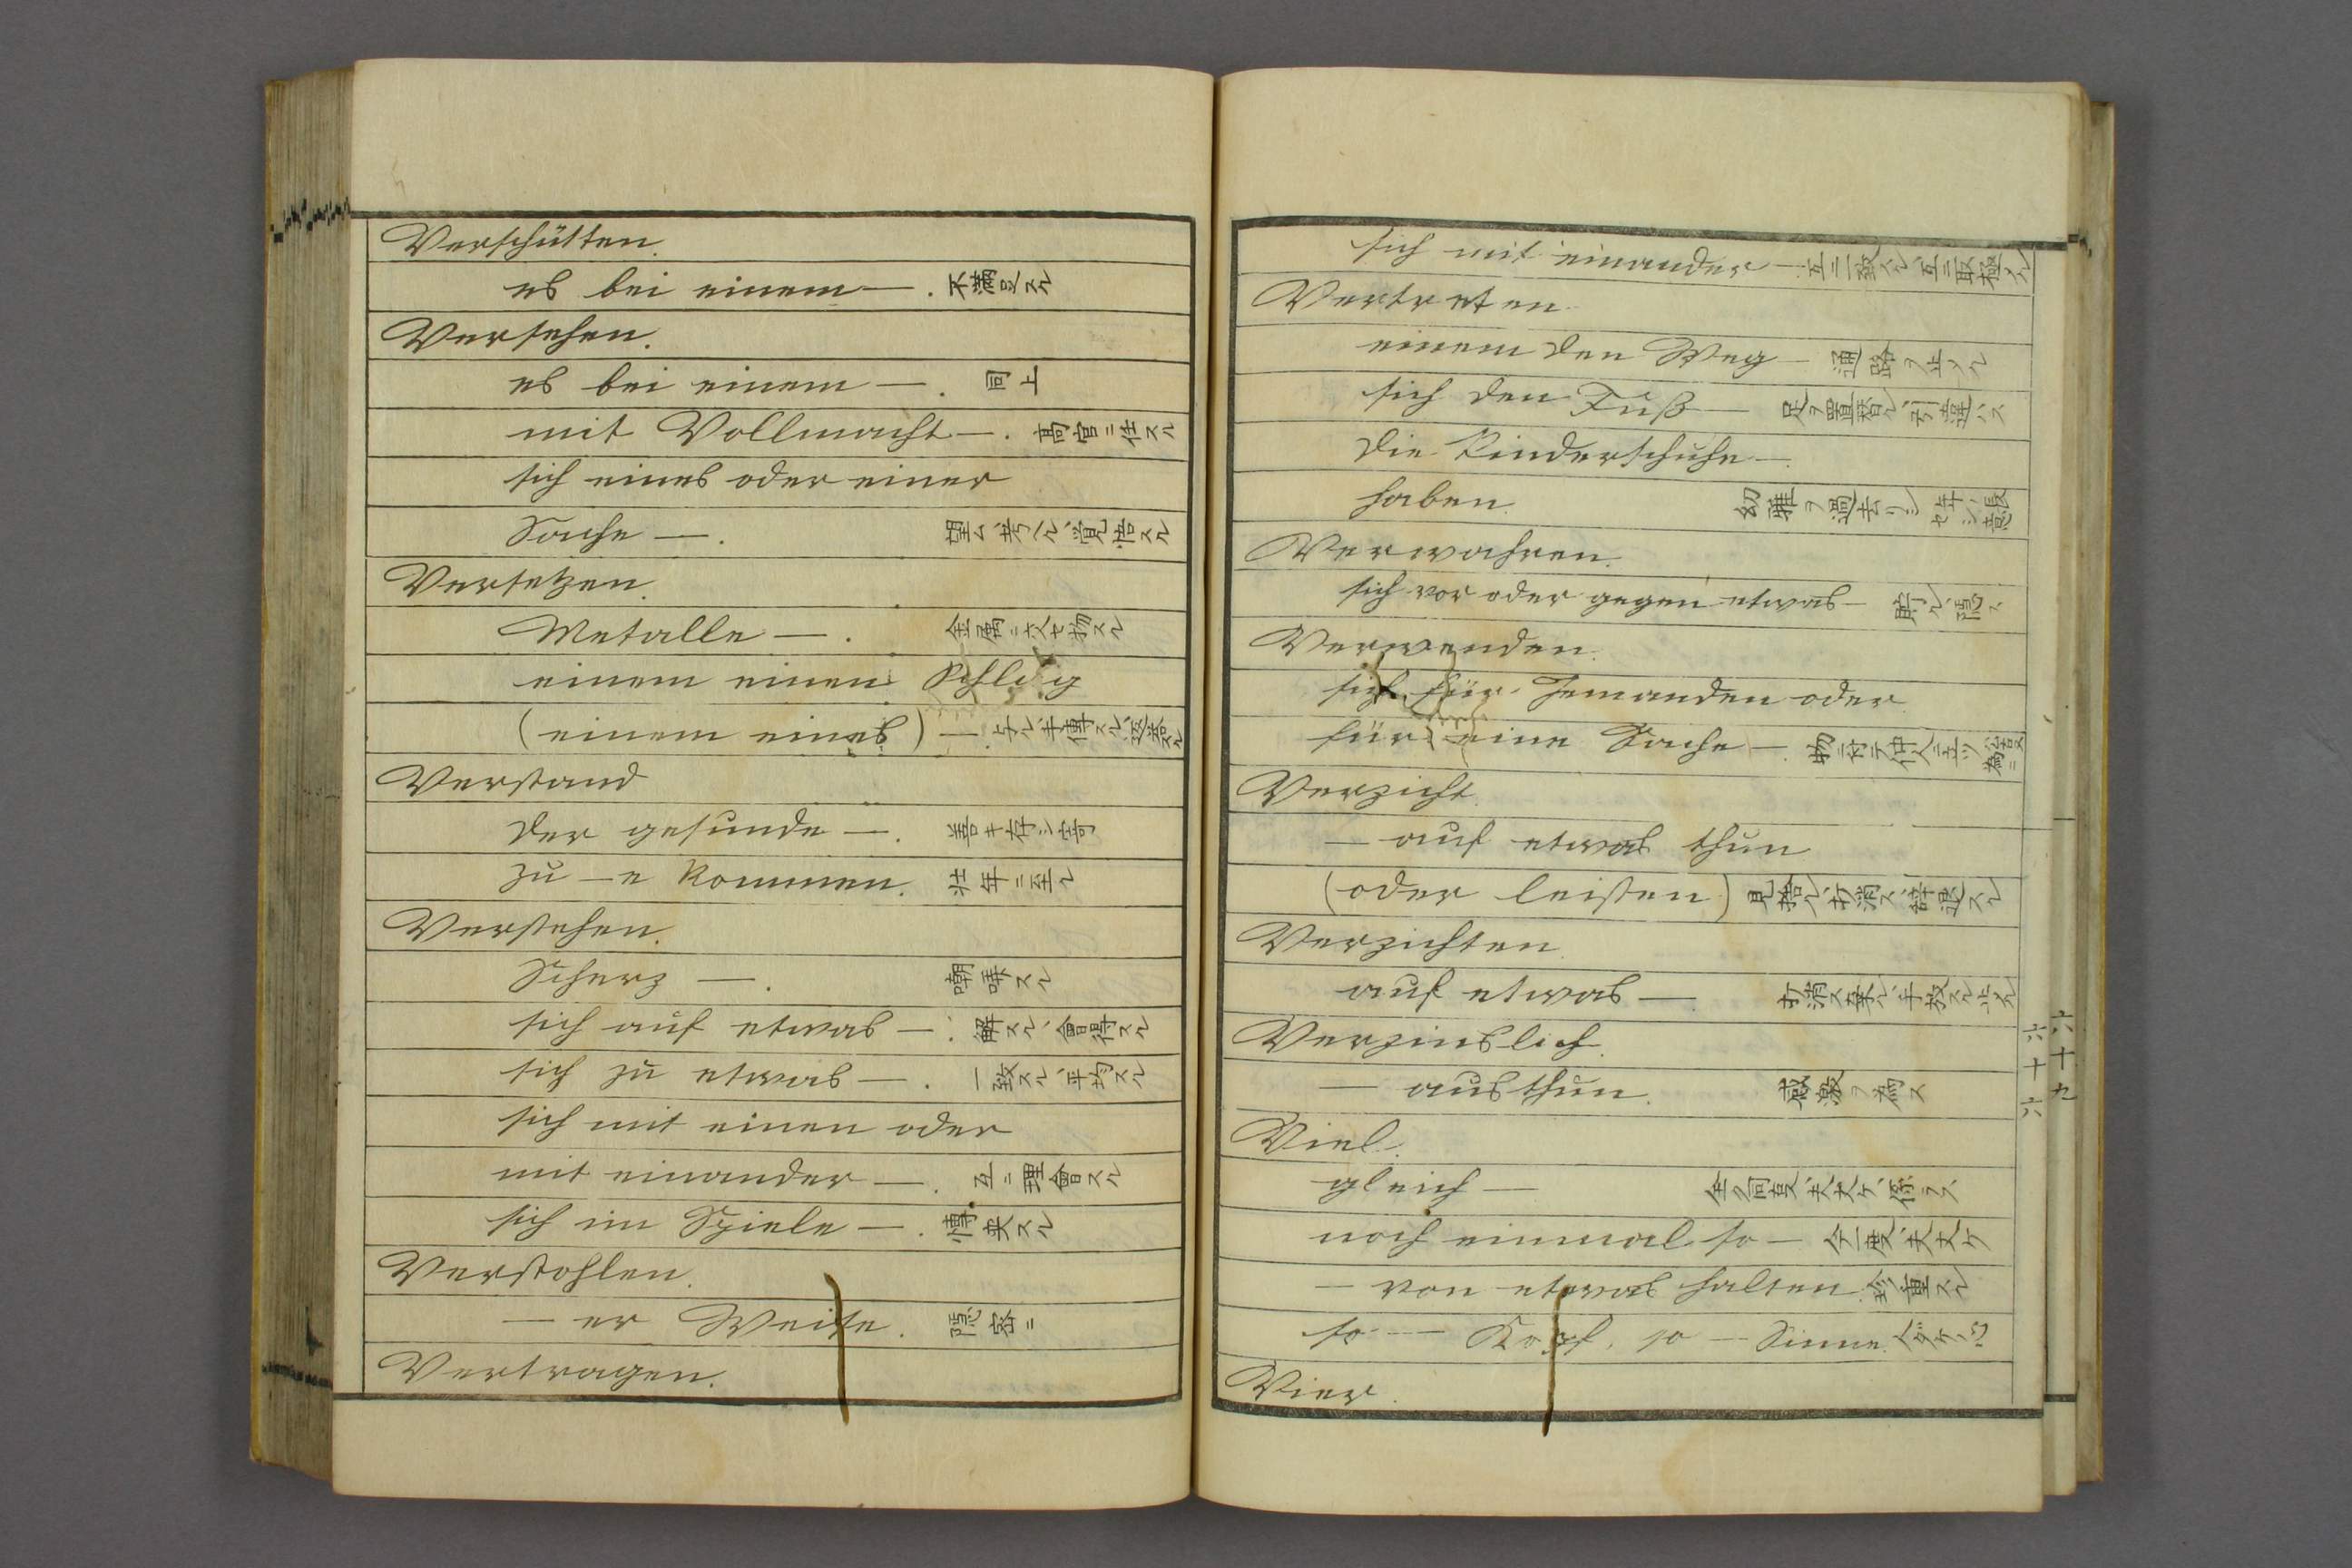 Verschütten.
es bei einem —. 不滿足スル
Versehen.
es bei einem —. 同上
mit Vollmacht —. 高官ニ任スル
sich eines oder einer
Sache —. 望ム、考ヘル、覚悟スル
Versetzen.
Metalle —. 金属ニ交セ物スル
einem einen Schlag
(einem eines) —. 与ル、手傳スル、返答スル
Verstand
der gesunde —. 善キ存シ寄
zu —e kommen. 壮年ニ至ル
Verstehen.
Scherz —. 嘲弄スル
sich auf etwas —. 解スル、會得スル
sich zu etwas —. 一致スル、平均スル
sich mit einen oder
mit einander —. 互ニ理會スル
sich im Spiele —. 博奕スル
Verstohlen.
— er Weise. 隠密ニ
Vertragen.
sich mit einander — 互ニ一致スル、互ニ取極メル
Vertreten.
einem den Weg — 通路ヲ止メル
sich den Fuß — 足ヲ置替ル、引違ハス
die Kinderschuhe —
haben. 幼稚ヲ過去リシ 年長セシ意
Verwahren.
sich vor oder gegen etwas — 貯ル、隠ス
Verwenden.
sich für Jemanden oder
für eine Sache —. 物ニ付テ仲人ニ立ツ
Verzicht.
— auf etwas thun
(oder leisten) 見捨ル、打消ス、辞退スル
Verzichten.
auf etwas — 打消ス、棄ル、手放スル、止メル
Verzinslich.
— austhun. 感激ヲ為ス
Viel.
gleich — 全ク同夏、夫丈ケ、係ラス
noch einmal so — 今一度、夫丈ケ
— von etwas halten. 珍重スル
so — Kopf, so — Sinne.
Vier.
六十六
六十九